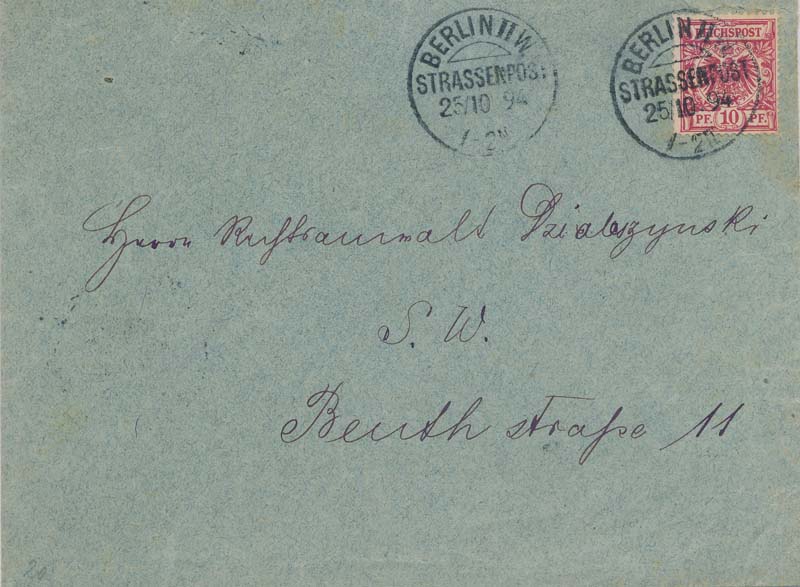 BERLIN II W.
STRASSENPOST
25/10 94
1-2N
BERLIN II W.
STRASSENPOST
25/10 94
1-2N
REICHSPOST
PF. 10 PF.
Herrn Rechtsanwalt Dzialoszynski
S. W.
Beuthstraße 11
20